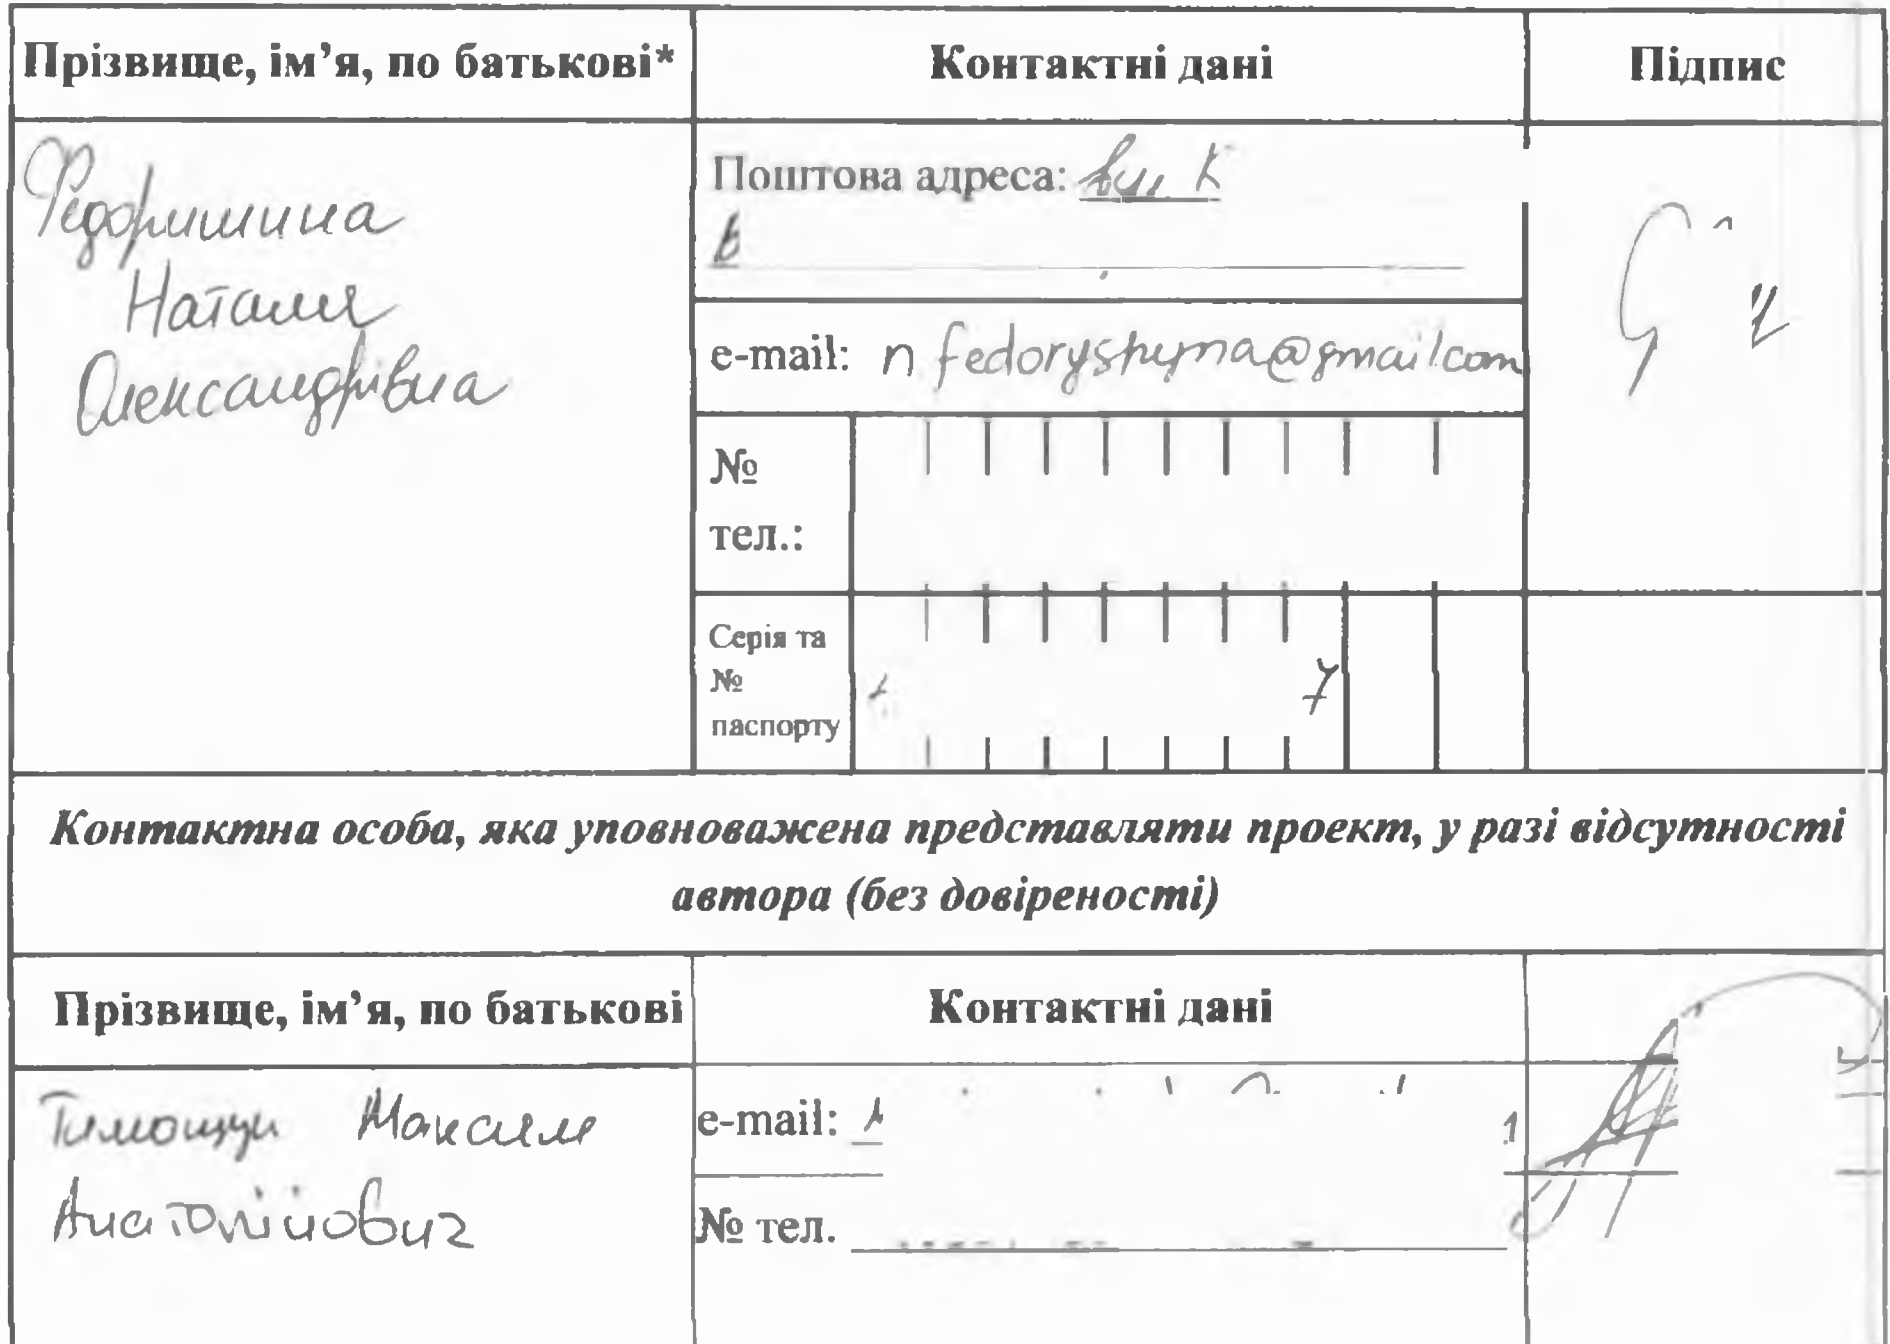 Прізвище, ім’я, по батькові* Контактні дані Підпис
Федоришина
Наталія
Олександрівна
Поштова адреса: вул К
В
e-mail: nfedoryshyna@gmail.com
№
тел.:
Серія та
№
паспорту
7
Контактна особа, яка уповноважена представляти проект, у разі відсутності
автора (без довіреності)
Прізвище, ім’я, по батькові Контактні дані
Тимощук Максим
Анатолійович
e-mail:
№ тел.